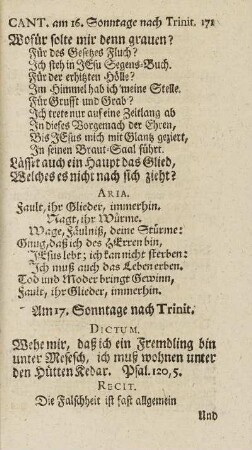 CANT. am 16. Sonntage nach Trinit. 171
Wofür solte mir denn grauen?
Für des Gesetzes Fluch?
Ich steh in JEsu Segens-Buch.
Für der erhitzten Hölle?
Im Himmel hab ich meine Stelle.
Für Grufft und Grab?
Ich trete nur auf eine Zeitlang ab
In dieses Vorgemach der Ehren,
Bis JEsus mich mit Glantz geziert,
In seinen Braut-Saal führt.
Lässt auch ein Haupt das Glied,
Welches es nicht nach sich zieht?
ARIA.
Fault, ihr Glieder, immerhin.
Nagt, ihr Würme.
Wage, Fäulniß, deine Stürme:
Gnug, daß ich des HErren bin,
JEsus lebt; ich kan nicht sterben:
Ich muß auch das Leben erben.
Tod und Moder bringt Gewinn,
Fault, ihr Glieder, immerhin.
Am 17. Sonntage nach Trinit.
DICTUM.
Wehe mir, daß ich ein Fremdling bin
unter Mesesch, ich muß wohnen unter
den Hütten Kedar. Psal. 120, 5.
RECIT.
Die Falschheit ist fast allgemein
Und